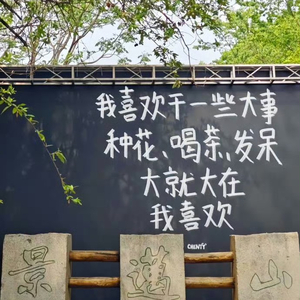 我喜欢干一些大事
种花、喝茶、发呆
大就大在
我喜欢
CHENTY
景 山